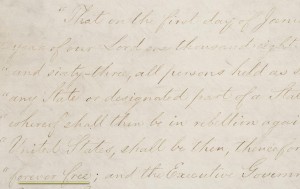 "That on the first day of Janu
year of our Lord one thousand eight
" and sixty-three, all persons held as s
" any State or designated part of a Stat
" whereof shall then be in rebellion again
" United States, shall be then, thencefor
" forever free; and the Executive Governm